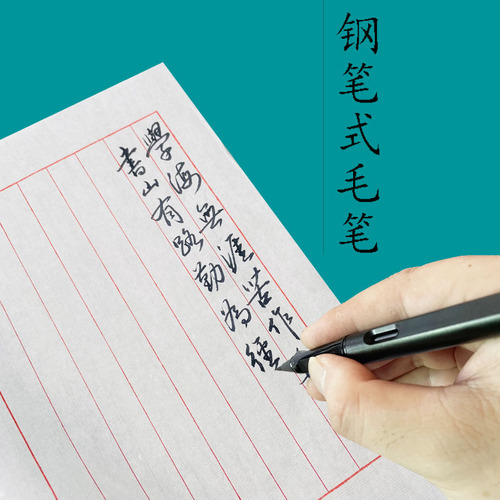 钢笔式毛笔
學海無涯苦作
書山有路勤為徑